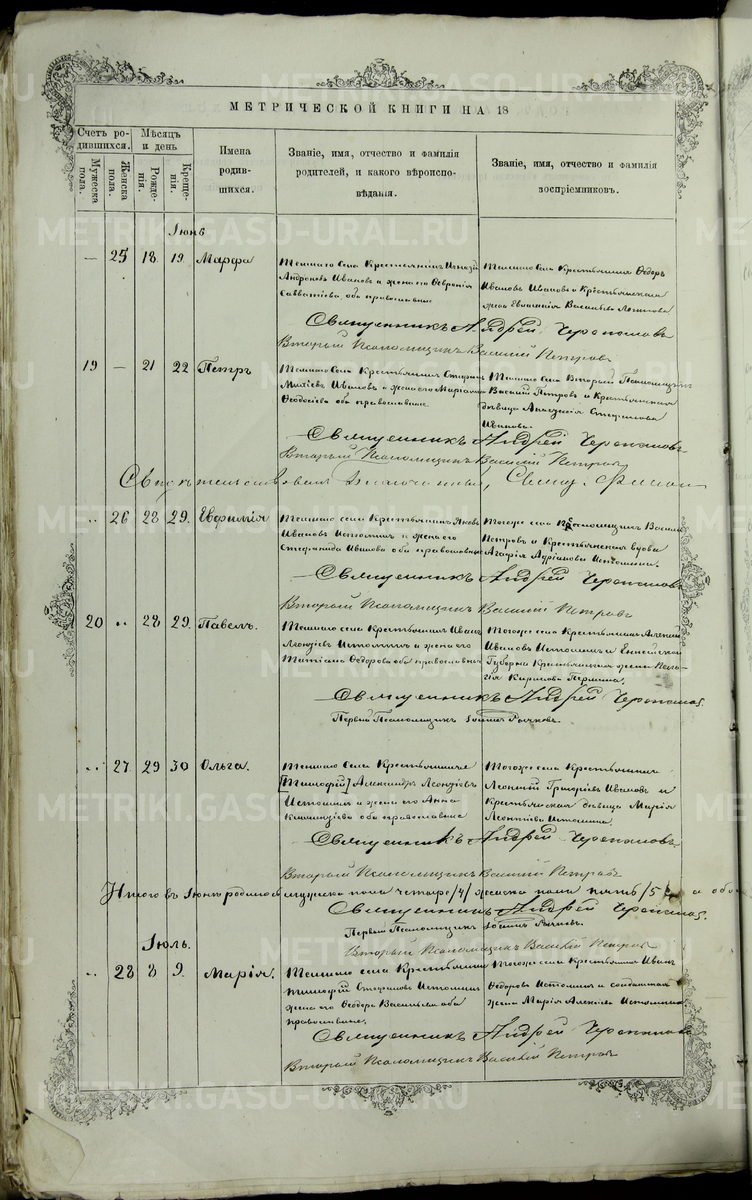 МЕТРИЧЕСКОЙ КНИГИ НА 18
Счетъ родившихся.
Мужеска пола.
Женска пола.
Мѣсяцъ и день
Рожденія.
Крещенія.
Имена родившихся.
Званіе, имя, отчество и фамилія родителей, и какого вѣроисповѣданія.
Званіе, имя, отчество и фамилія воспріемниковъ.
Іюнь
— 25 18 19 Марфа
села Крестьянинъ
Андреевъ Ивановъ и жена его Февронія
Савватіева, оба православные
села Крестьянинъ Ѳедоръ
Ивановъ Ивановъ и Крестьянская
жена Васильева
Священникъ Андрей
Вторый Псаломщикъ Василій Петровъ
19 — 21 22 Петръ
села Крестьянинъ
Ивановъ и жена его
Ѳеодосіева оба православные
села Вторый Псаломщикъ
Василій Петровъ и Крестьянская
дѣвица Анастасія Стефанова
Иванова.
Священникъ Андрей
Вторый Псаломщикъ Василій Петровъ
Свидѣтельствовалъ Благочинный, Священ.
„ 26 28 29. Евфимія
села Крестьянинъ Яковъ
Ивановъ Истоминъ и жена его
Стефанида Иванова оба православные
Тогоже села Псаломщикъ Василій
Петровъ и Крестьянская вдова
Агафія Адріанова Истомина.
Священникъ Андрей
Вторый Псаломщикъ Василій Петровъ
20 „ 28 29. Павелъ.
села Крестьянинъ Иванъ
Леонтіевъ Истоминъ и жена его
Татіана Ѳедорова оба православные
Тогоже села Крестьянинъ Алексій
Ивановъ Истоминъ и Енисейской
Губерніи Крестьянская жена Пелагія
Кирилова
Священникъ Андрей
Первый Псаломщикъ
„ 27 29 30 Ольга.
села Крестьянинъ
[Тимофій] Александръ Леонтіевъ
Истоминъ и жена его Анна
оба православные
Тогоже села Крестьянинъ
Леонтій Григоріевъ Ивановъ и
Крестьянская дѣвица Марія
Леонтіева Истомина.
Священникъ Андрей
Вторый Псаломщикъ Василій Петровъ
Итого въ Іюнѣ родилось мужска пола четыре /4/ женска пола пять /5/ а обо
Священникъ Андрей
Первый Псаломщикъ
Вторый Псаломщикъ Василій Петровъ
Іюль.
„ 28 8 9. Марія.
села Крестьянинъ
Тимофій Стефановъ Истоминъ
жена его Ѳеодора Васильева оба
православные.
Тогоже села Крестьянинъ Иванъ
Ѳедоровъ Истоминъ и солдатская
жена Марія Алексіева Истомина
Священникъ Андрей
Вторый Псаломщикъ Василій Петровъ
METRIKI.GASO-URAL.RU